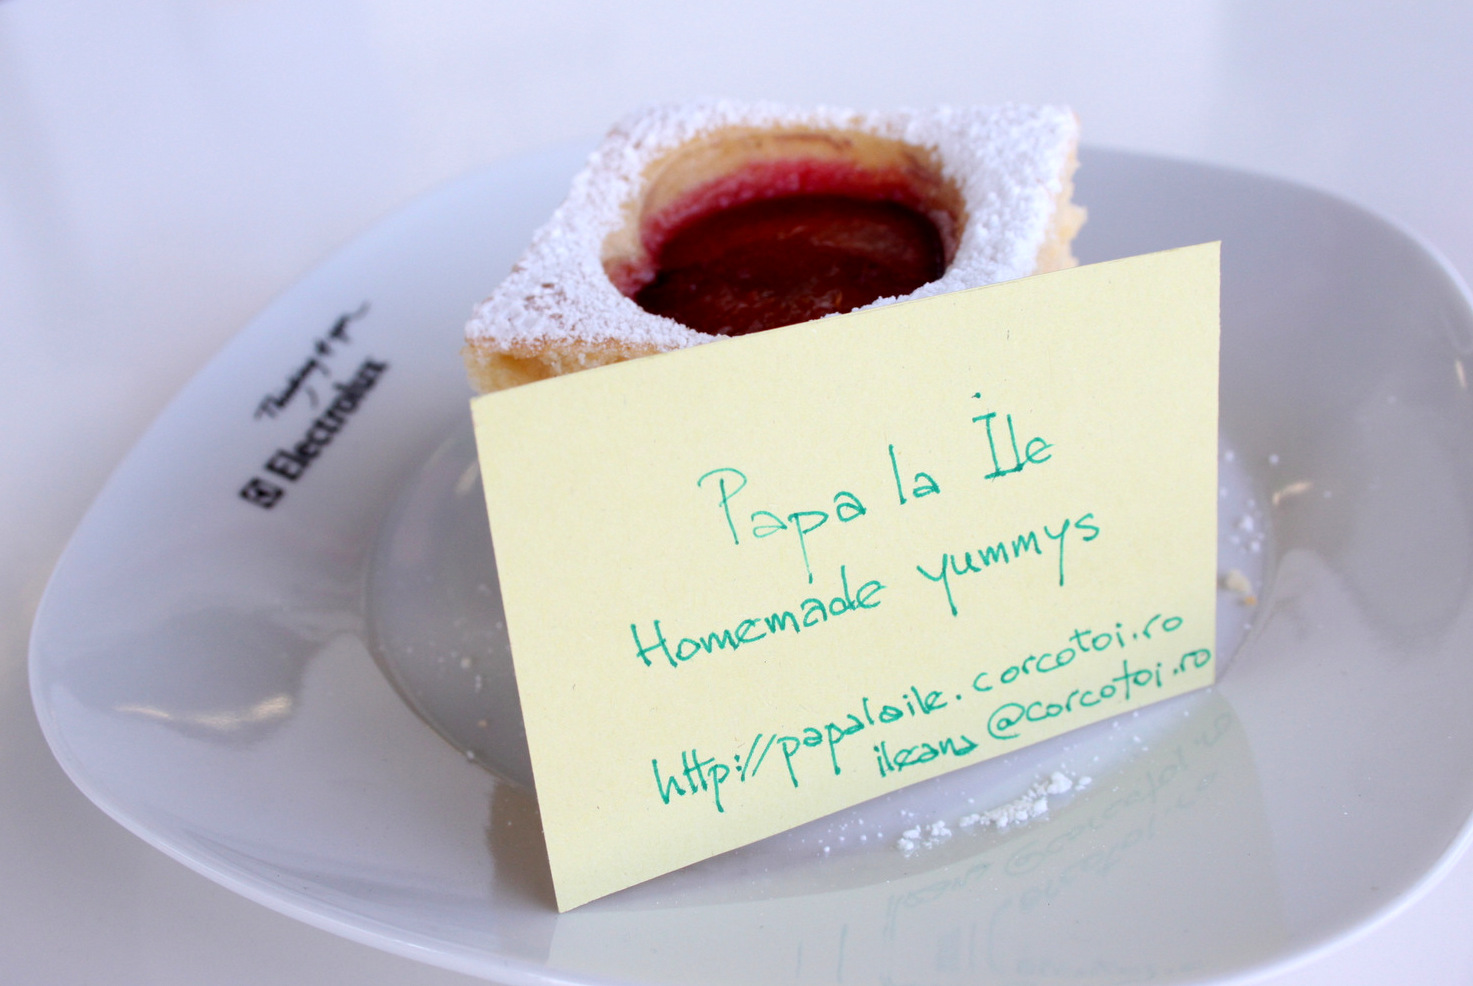 Thinking of you
Electrolux
Papa la Île
Homemade yummys
http://papalaile.corcotoi.ro
ileana@corcotoi.ro